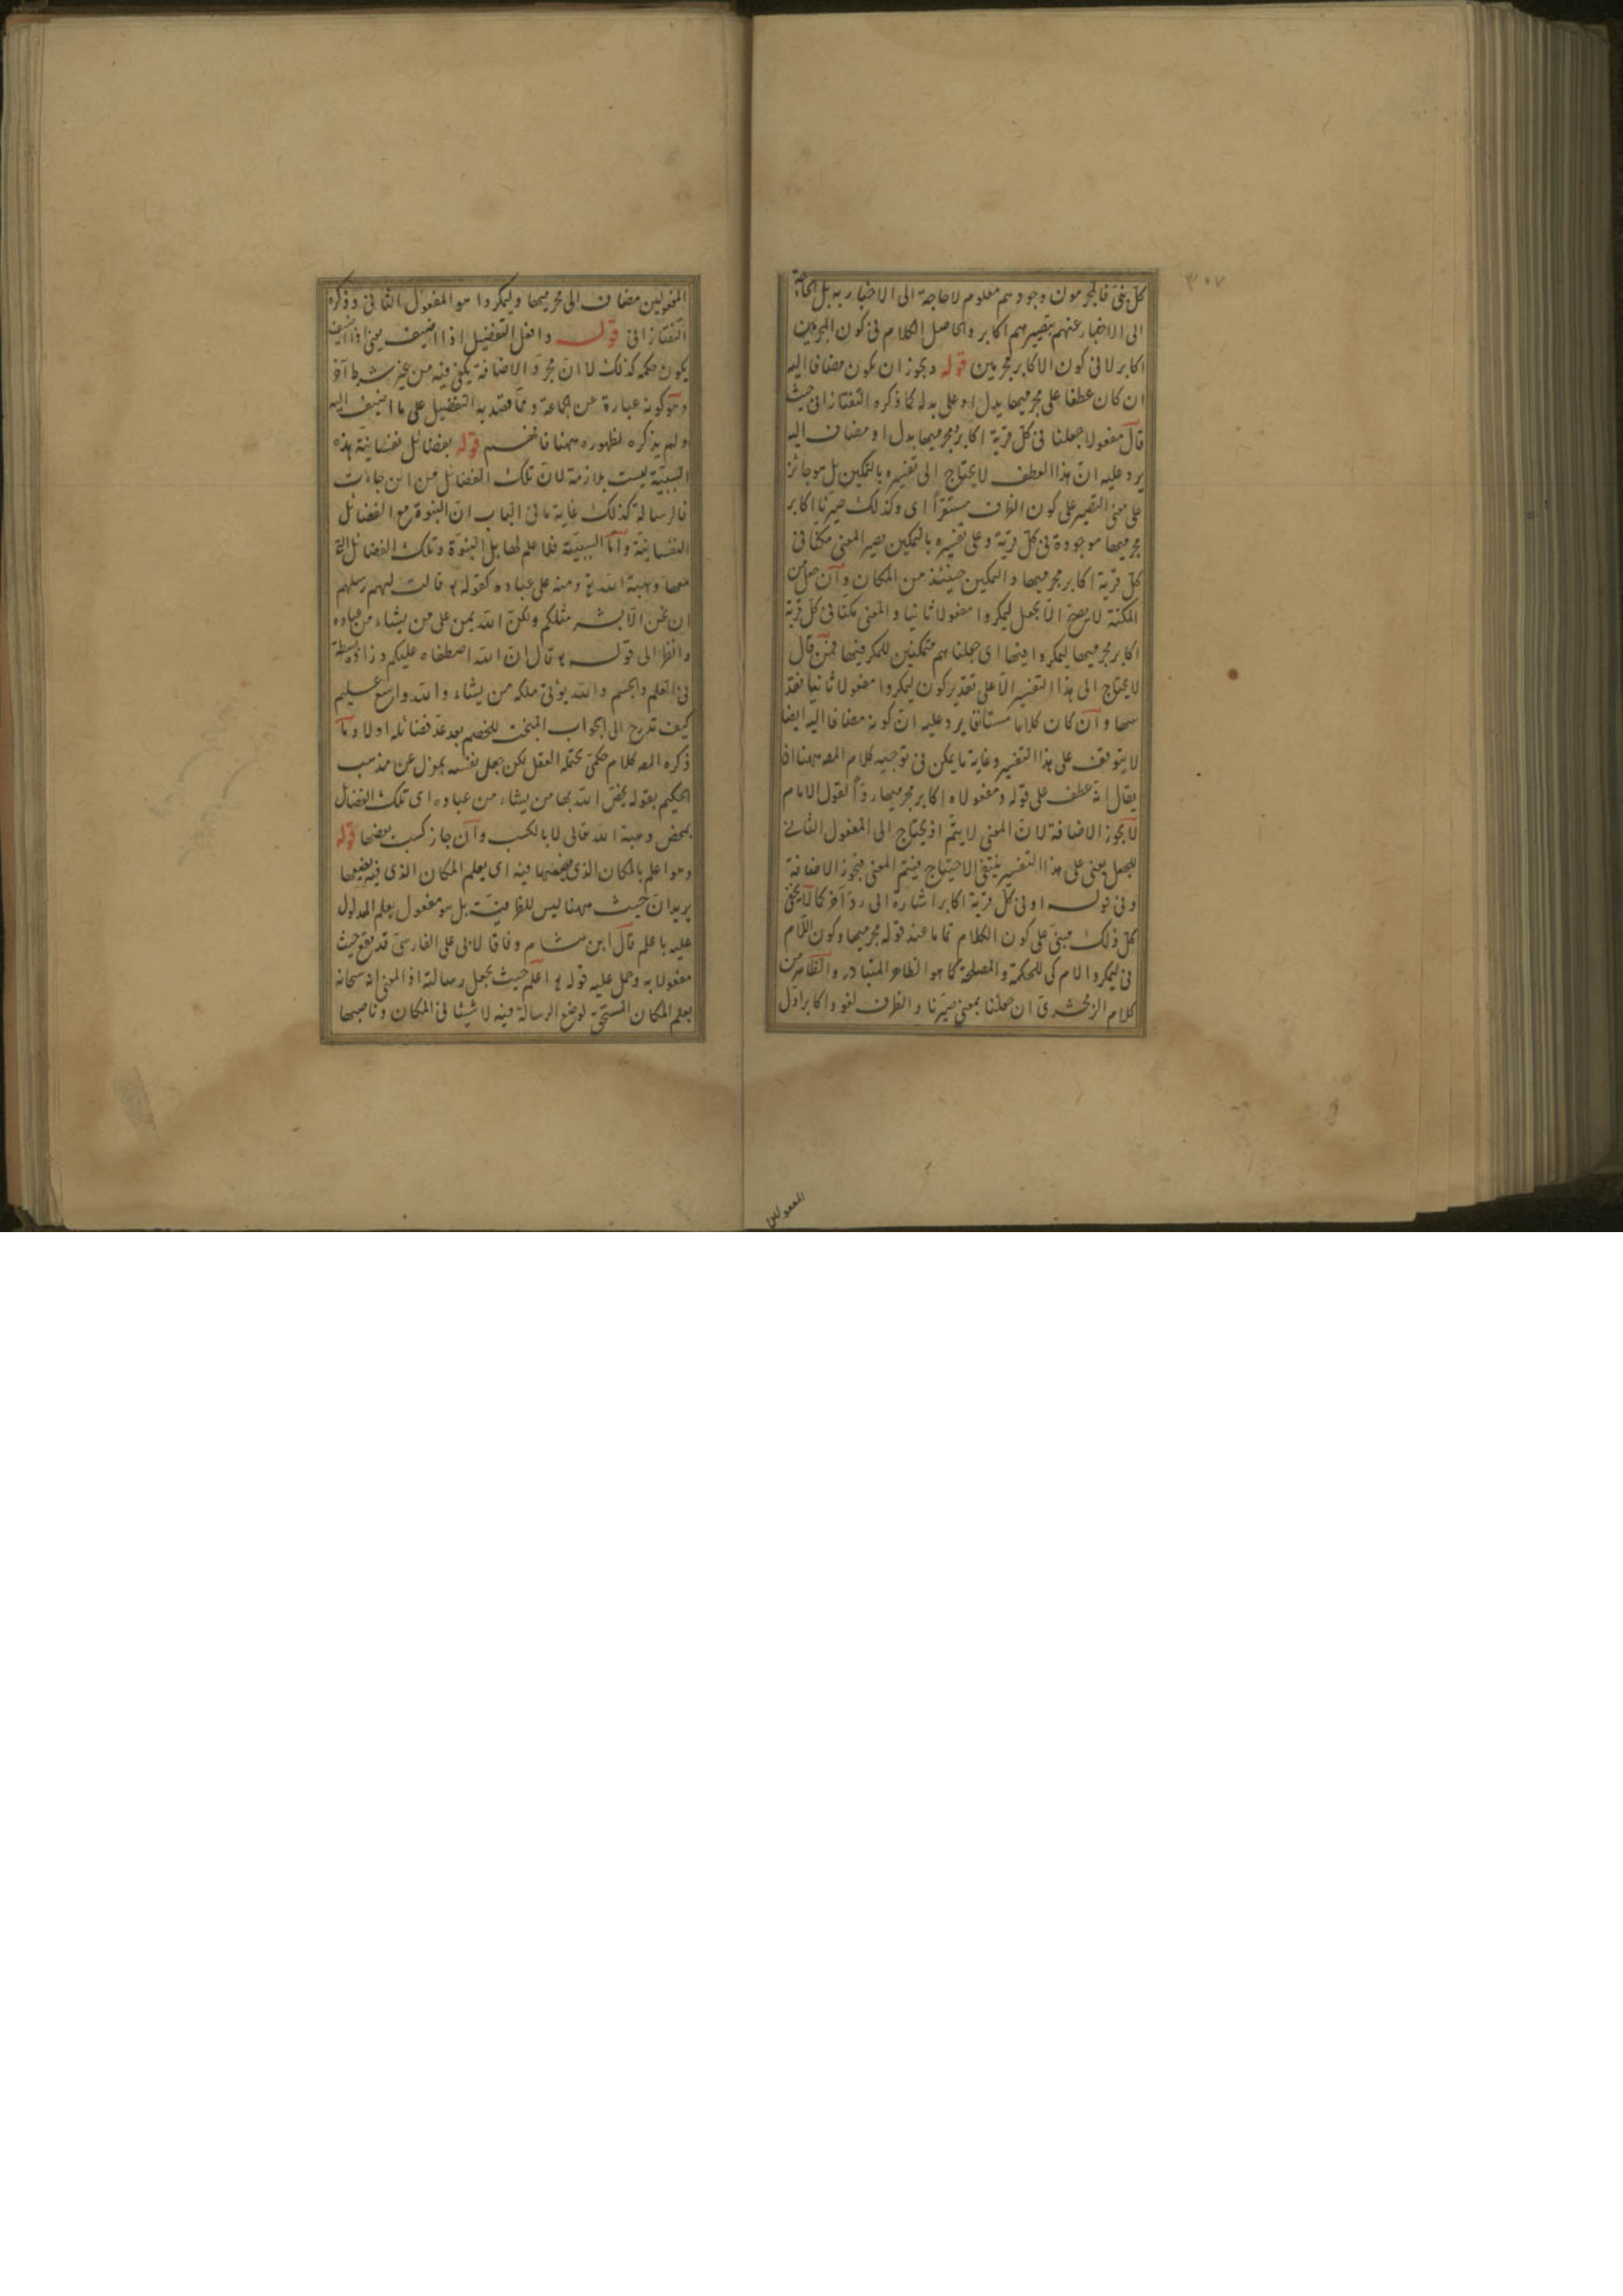 ٣٠٧
كلّ بنى فالمجرمون وجودهم معلوم لا حاجة الى الاخبار به بل الحاجة
الى الاخبار عنهم بتصييرهم اكابر والحاصل الكلام فى كون المجرمين
اكابر لا فى كون الاكابر مجرمين قوله ويجوز ان يكون مضافا اليه
ان كان عطفا على مجرميها بدل او على بدله كما ذكره التفتازانى حيث
قال مفعولا جعلنا فى كل قرية اكابر ومجرميها بدل او مضاف اليه
يرد عليه انّ هذا العطف لا يحتاج الى تفسيره بالتمكين بل هو جائز
على معنى التصيير على كون الظرف مستقرّا اى وكذلك صيّرنا اكابر
مجرميها موجودة فى كل قرية وعلى تفسيره بالتمكين يصير المعنى مكنّا فى
كل قرية اكابر مجرميها والتمكين حينئذ من المكان وان جعل من
المكنة لا يصحّ الا بجعل ليمكروا مفعولا ثانيا والمعنى مكنّا فى كل قرية
اكابر مجرميها ليمكروا فيها اى جعلناهم متمكنين للمكر فيها فمن قال
لا يحتاج الى هذا التفسير الا على تقدير كون ليمكروا مفعولا ثانيا فقد
سها وان كان كلاما مستانفا يرد عليه انّ كونه مضافا اليه ايضا
لا يتوقف على هذا التفسير وغاية ما يمكن فى توجيه كلام المصه ههنا ان
يقال انه عطف على قوله ومفعولاه اكابر مجرميها ردّا لقول الامام
لا يجوز الاضافة لانّ المعنى لا يتمّ اذ يحتاج الى المفعول الثانى
للجعل يعنى على هذا التفسير ينتفى الاحتياج فيتم المعنى فيجوز الاضافة
وفى قوله او فى كل قرية اكابر اشارة الى ردّ آخر كما لا يخفى
كل ذلك مبنىّ على كون الكلام تماما عند قوله مجرميها وكون اللام
فى ليمكروا لام كى للحكمة والمصلحة كما هو الظاهر المتبادر والظاهر من
كلام الزمخشرى ان جعلنا بمعنى صيّرنا والظرف لغو واكابر اوّل
المفعولين
المفعولين مضاف الى مجرميها وليمكروا هو المفعول الثانى وذكره
التفتازانى قوله وافعل التفضيل اذا اضيف يعنى اذا اضيف
يكون حكمه كذلك لا انّ مجرّد الاضافة يكفى فيه من غير شرط آخر
وهو كونه عبارة عن الجماعة وممّا قصد به التفضيل على ما اضيف اليه
ولم يذكره لظهوره ههنا فافهم قوله بفضائل نفسانية هذه
السببيّة ليست بلازمة لانّ تلك الفضائل من اين جاءت
فالرسالة كذلك غاية ما فى الباب انّ النبوة مع الفضائل
النفسانيّة وامّا السببيّة فلا علم لها بل النبوّة وتلك الفضائل التى
معها وهبة الله تع ومنه على عباده كقوله تع قالت لهم رسلهم
ان نحن الا بشر مثلكم ولكنّ الله يمن على من يشاء من عباده
وانظر الى قوله تع قال انّ الله اصطفاه عليكم وزاده بسطة
فى العلم والجسم والله يؤتى ملكه من يشاء والله واسع عليم
كيف تدرج الى الجواب المبخت للخصم بعد عدّ فضائله اولا وما
ذكره المصه كلام حكمى يحتمله العقل لكن جعل نفسه بمعزل عن مذهب
الحكيم بقوله يخصّ الله بها من يشاء من عباده اى تلك الفضائل
بمحض وهبة الله تعالى لا بالكسب وان جاز كسب بعضها قوله
وهو اعلم بالمكان الذى يضعها فيه اى يعلم المكان الذى فيه يضعها
يريد انّ حيث ههنا ليس للظرفيّة بل هو مفعول يعلم المدلول
عليه باعلم قال ابن هشام وفاقا لابى على الفارسىّ قد يقع حيث
مفعولا به وحمل عليه قوله تع اعلم حيث يجعل رسالته اذ المعنى انه سبحانه
يعلم المكان المستحق لوضع الرسالة فيه لا شيئا فى المكان وناصبها